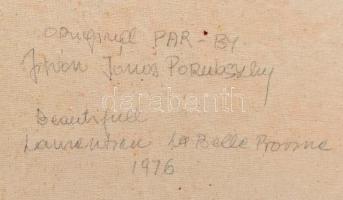 original PAR-BY
János Porubszky
beautifull
Laurentien La Belle
1976
darabanth